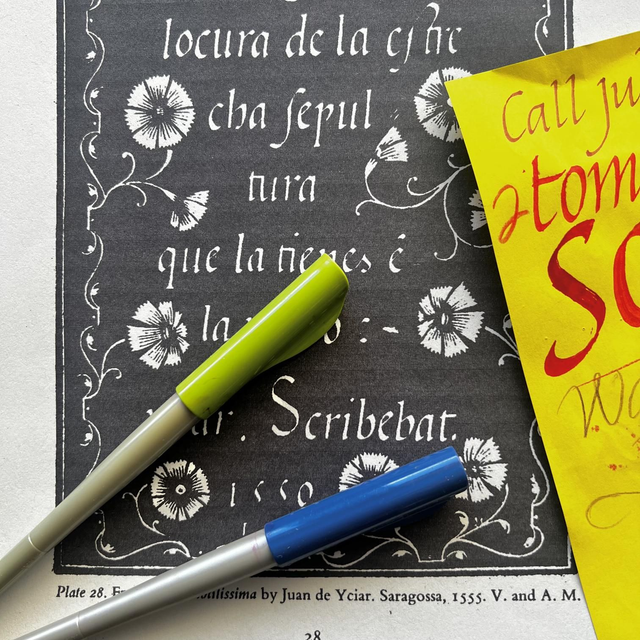 locura de la estre
cha sepul
tura
que la tienes é
la :-
Scribebat.
1550
Plate 28. by Juan de Yciar. Saragossa, 1555. V. and A. M.
28
Call
atom
SC